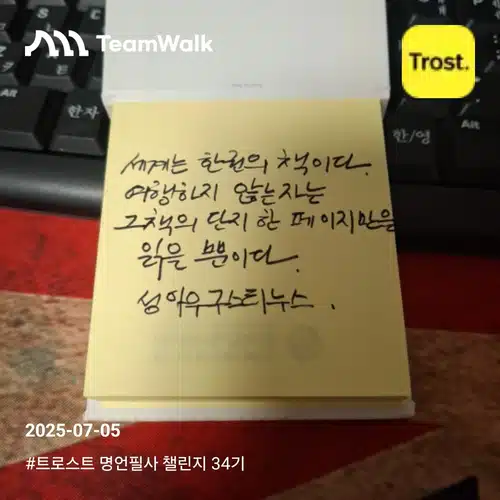 TeamWalk
Trost.
Alt
한자
Alt
한/영
세계는 한권의 책이다.
여행하지 않는자는
그책의 단지 한 페이지만을
읽을 뿐이다.
성 아우구스티누스.
2025-07-05
#트로스트 명언필사 챌린지 34기